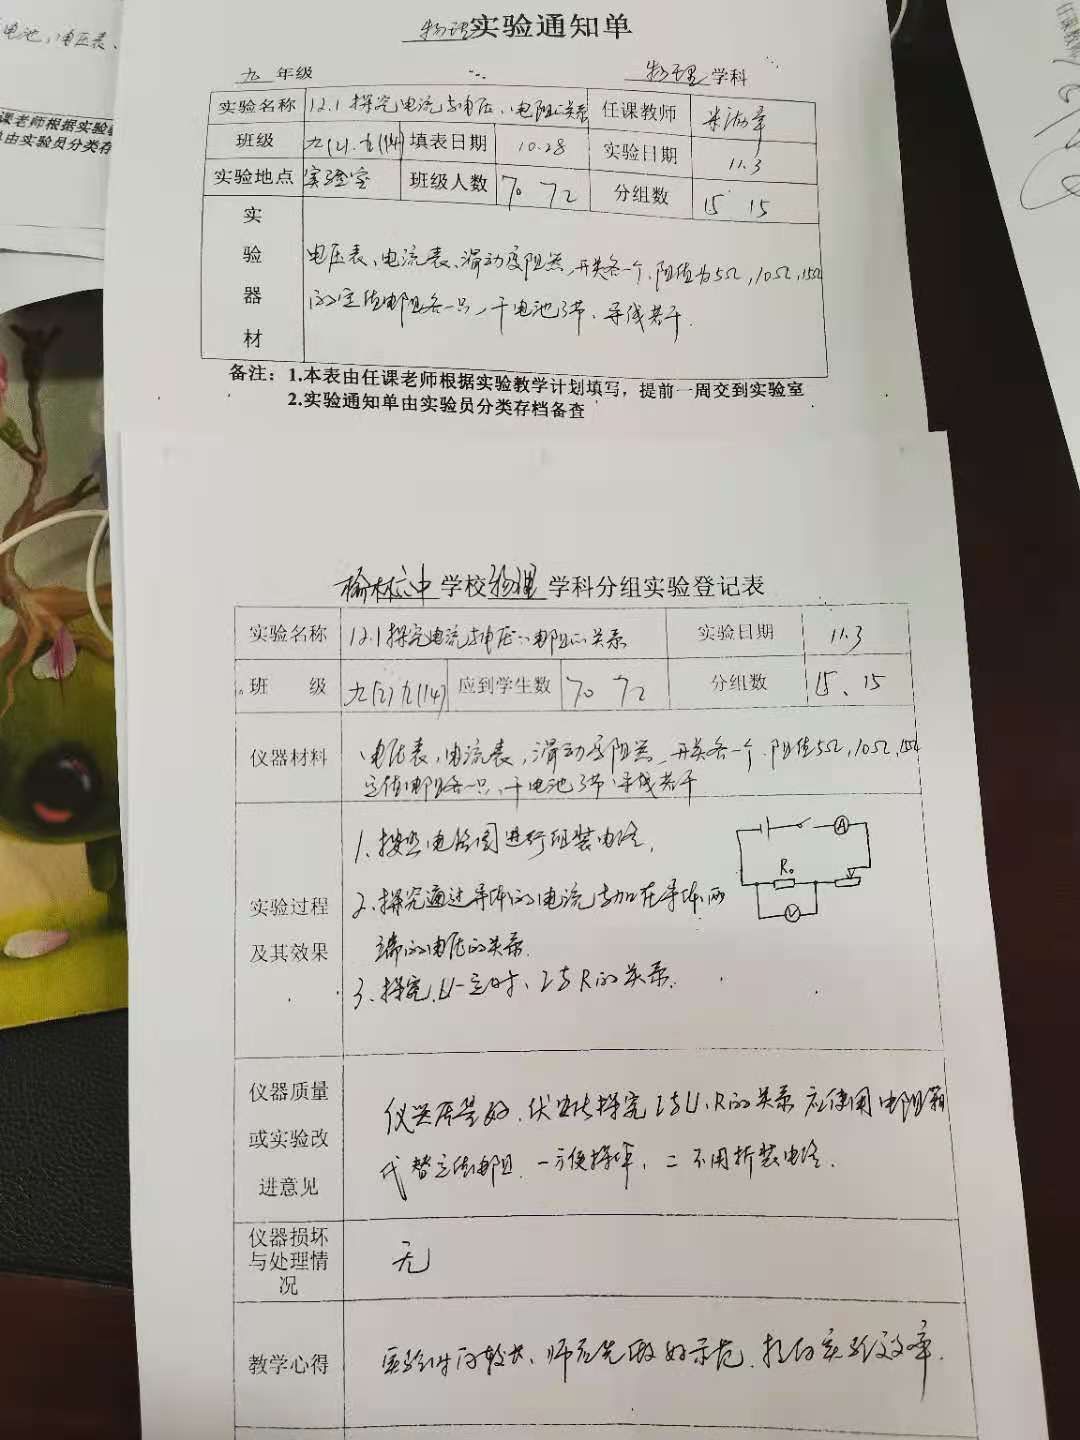 电池、电压表、
课老师根据实验
由实验员分类存
任课教师
物理实验通知单
九 年级 物理 学科
实验名称 12.1 探究电流与电压、电阻的关系 任课教师
班级 九(2).九(14) 填表日期 10.28 实验日期 11.3
实验地点 实验室 班级人数 70 72 分组数 15 15
实验器材
电压表、电流表、滑动变阻器、开关各一个、阻值为5Ω,10Ω,15Ω
的定值电阻各一只、干电池3节、导线若干.
备注：1.本表由任课老师根据实验教学计划填写，提前一周交到实验室
2.实验通知单由实验员分类存档备查
榆林六中 学校 物理 学科分组实验登记表
实验名称 12.1 探究电流与电压、电阻的关系 实验日期 11.3
班 级 九(2) 九(14) 应到学生数 70 72 分组数 15、15
仪器材料 电压表、电流表、滑动变阻器、开关各一个.阻值5Ω,10Ω,15Ω
定值电阻各一只、干电池3节、导线若干
实验过程
及其效果
1、按照电路图进行组装电路.
2、探究通过导体的电流与加在导体两
端的电压的关系.
3、探究U一定时、I与R的关系.
A
R₀
V
仪器质量
或实验改
进意见
仪器质量好、伏安法探究I与U、R的关系应使用电阻箱
代替定值电阻.一方便操作、二不用拆装电路.
仪器损坏
与处理情
况
无
教学心得 实验时间较长、师应先做好示范.提高实验效率.